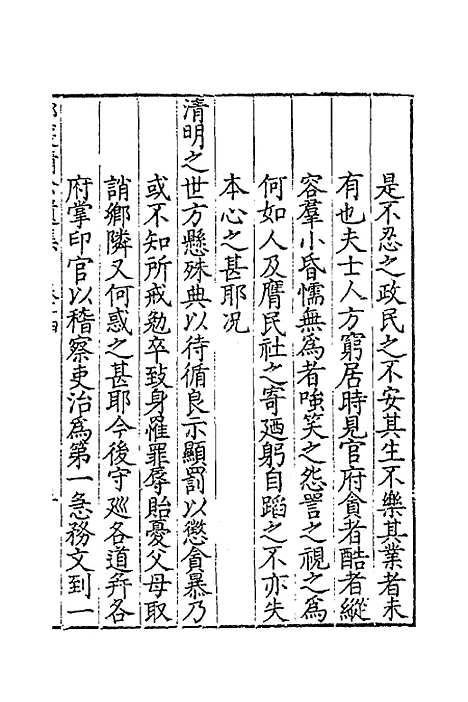 是不忍之政民之不安其生不樂其業者未
有也夫士人方窮居時見官府貪者酷者縱
容羣小昏懦無為者嗤笑之怨詈之視之為
何如人及膺民社之寄廼躬自蹈之不亦失
本心之甚耶况
清明之世方懸殊典以待循良示顯罰以懲貪暴乃
或不知所戒勉卒致身罹罪辱貽憂父母取
誚鄉隣又何惑之甚耶今後守廵各道幷各
府掌印官以稽察吏治為第一急務文到一